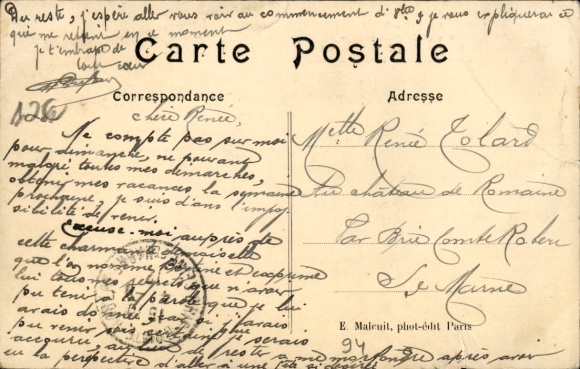 Du reste, j'espère aller vous voir au commencement d' 8bre, je vous expliquerai ce
que me retient en ce moment
je t'embrasse de
tout cœur
Carte Postale
Correspondance
Adresse
chère Renée,
Ne compte pas sur moi
pour dimanche, ne pouvant
malgré toutes mes démarches,
obtenir mes vacances la semaine
prochaine, je suis dans l'impos
sibilité de venir.
Excuse-moi auprès de
cette charmante demoiselle
que l'on nomme et exprime
lui tous mes regrets que n'avoir
pu tenir à la parole que je lui
avais donnée, car si j'avais
pu venir sois certaine que je serais
accouru, au lieu de rester à me morfondre après avoir
eu la perspective d'aller à une fête si désirée
Melle Renée Tolard
Au château de Romaine
Par Brie Comte Robert
Se Marne
E. Malcuit, phot-édit Paris
94